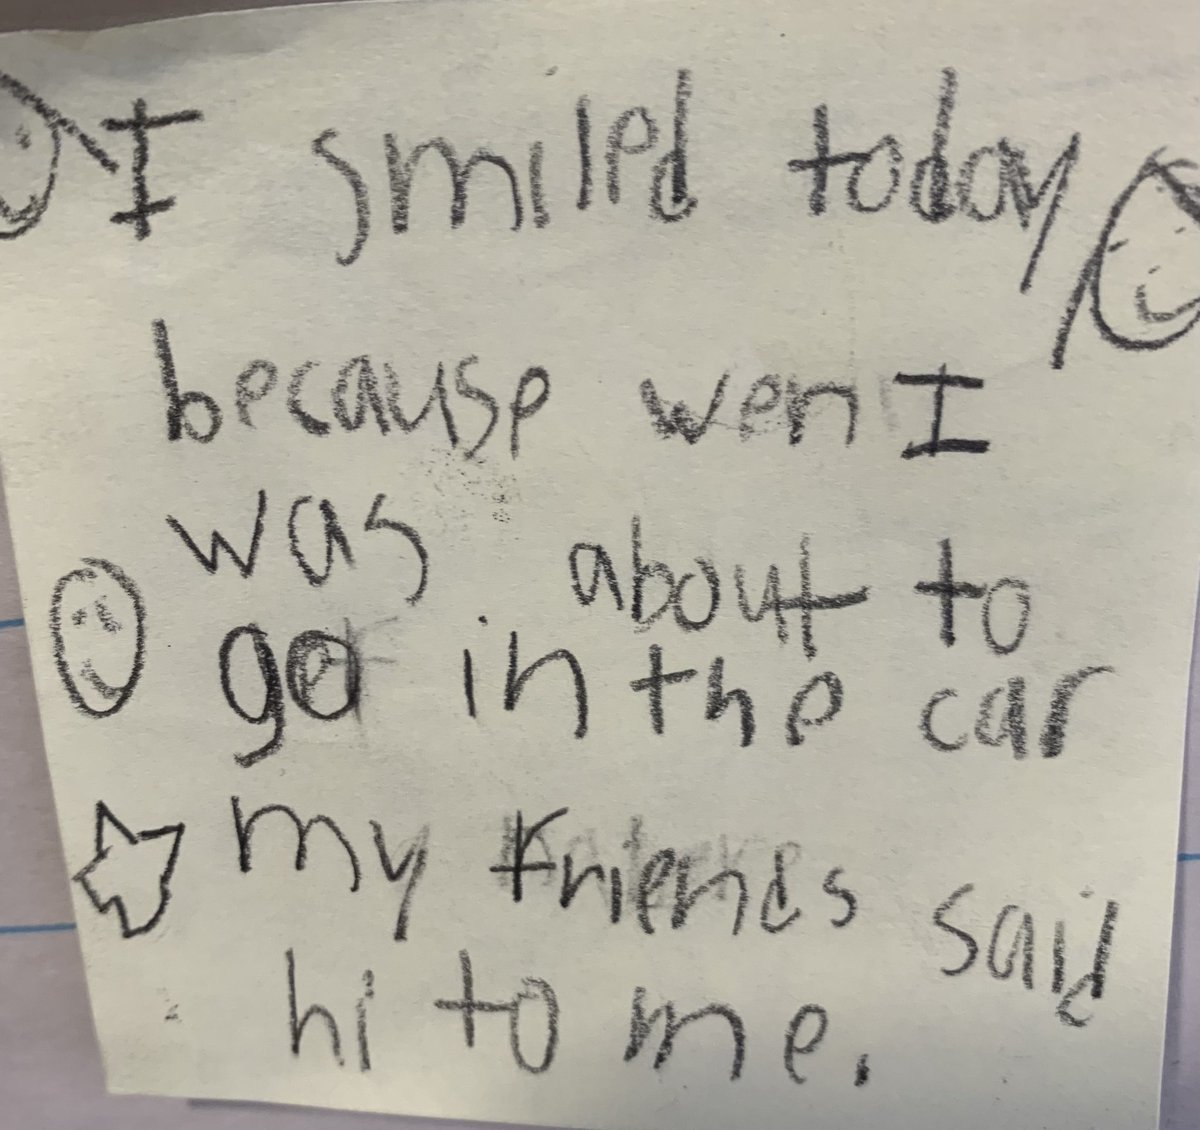 I smiled today
because wen I
was about to
go in the car
my friends said
hi to me.